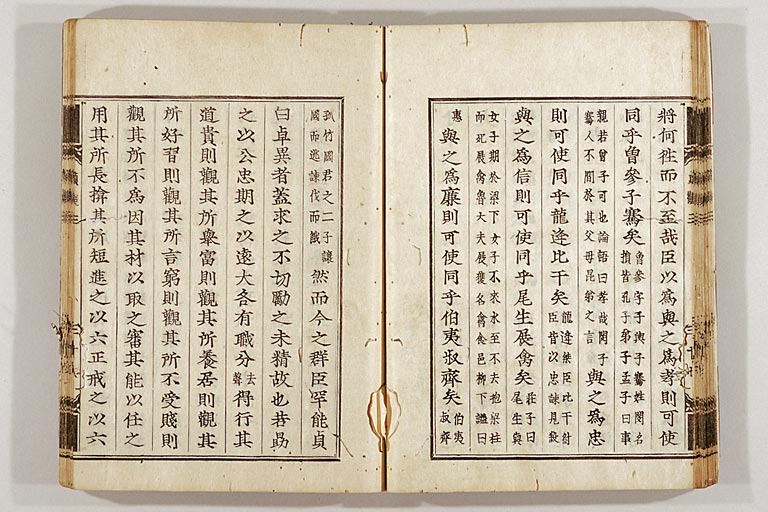 將何徃而不至哉臣以為與之為孝則可使
同乎曾參子騫矣曾參字子輿子騫姓閔名損皆孔子弟子孟子曰事
親若曾子可也論語曰孝哉閔子騫人不間於其父母昆弟之言與之為忠
則可使同乎龍逄比干矣龍逄桀臣比干紂臣皆以忠諫見殺
與之為信則可使同乎尾生展禽矣莊子曰尾生與
女子期於梁下女子不來水至不去抱梁柱而死展禽魯大夫展獲名禽食邑柳下謚曰
惠與之為廉則可使同乎伯夷叔齊矣伯夷叔齊
孤竹國君之二子讓國而逃諫伐而餓然而今之群臣罕能貞
白卓異者蓋求之不切勵之未精故也若勗
之以公忠期之以遠大各有職分去聲得行其
道貴則觀其所舉富則觀其所養居則觀其
所好習則觀其所言窮則觀其所不愛賤則
觀其所不為因其材以取之審其能以任之
用其所長揜其所短進之以六正戒之以六